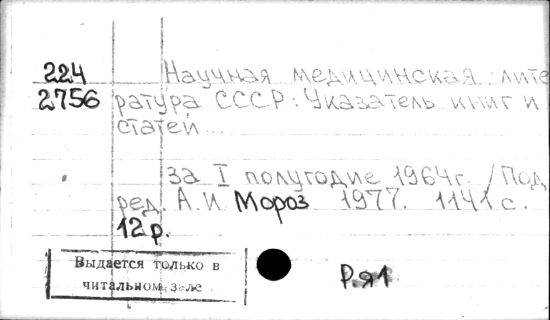 224 Научная медицинская лите
2756 ратура СССР: Указатель книг и
статей...
за I полугодие 1964г. /Под
ред. А.И Мороз 1977. 1141 с.
12р.
Выдается только в
читальном зале
Р.я1